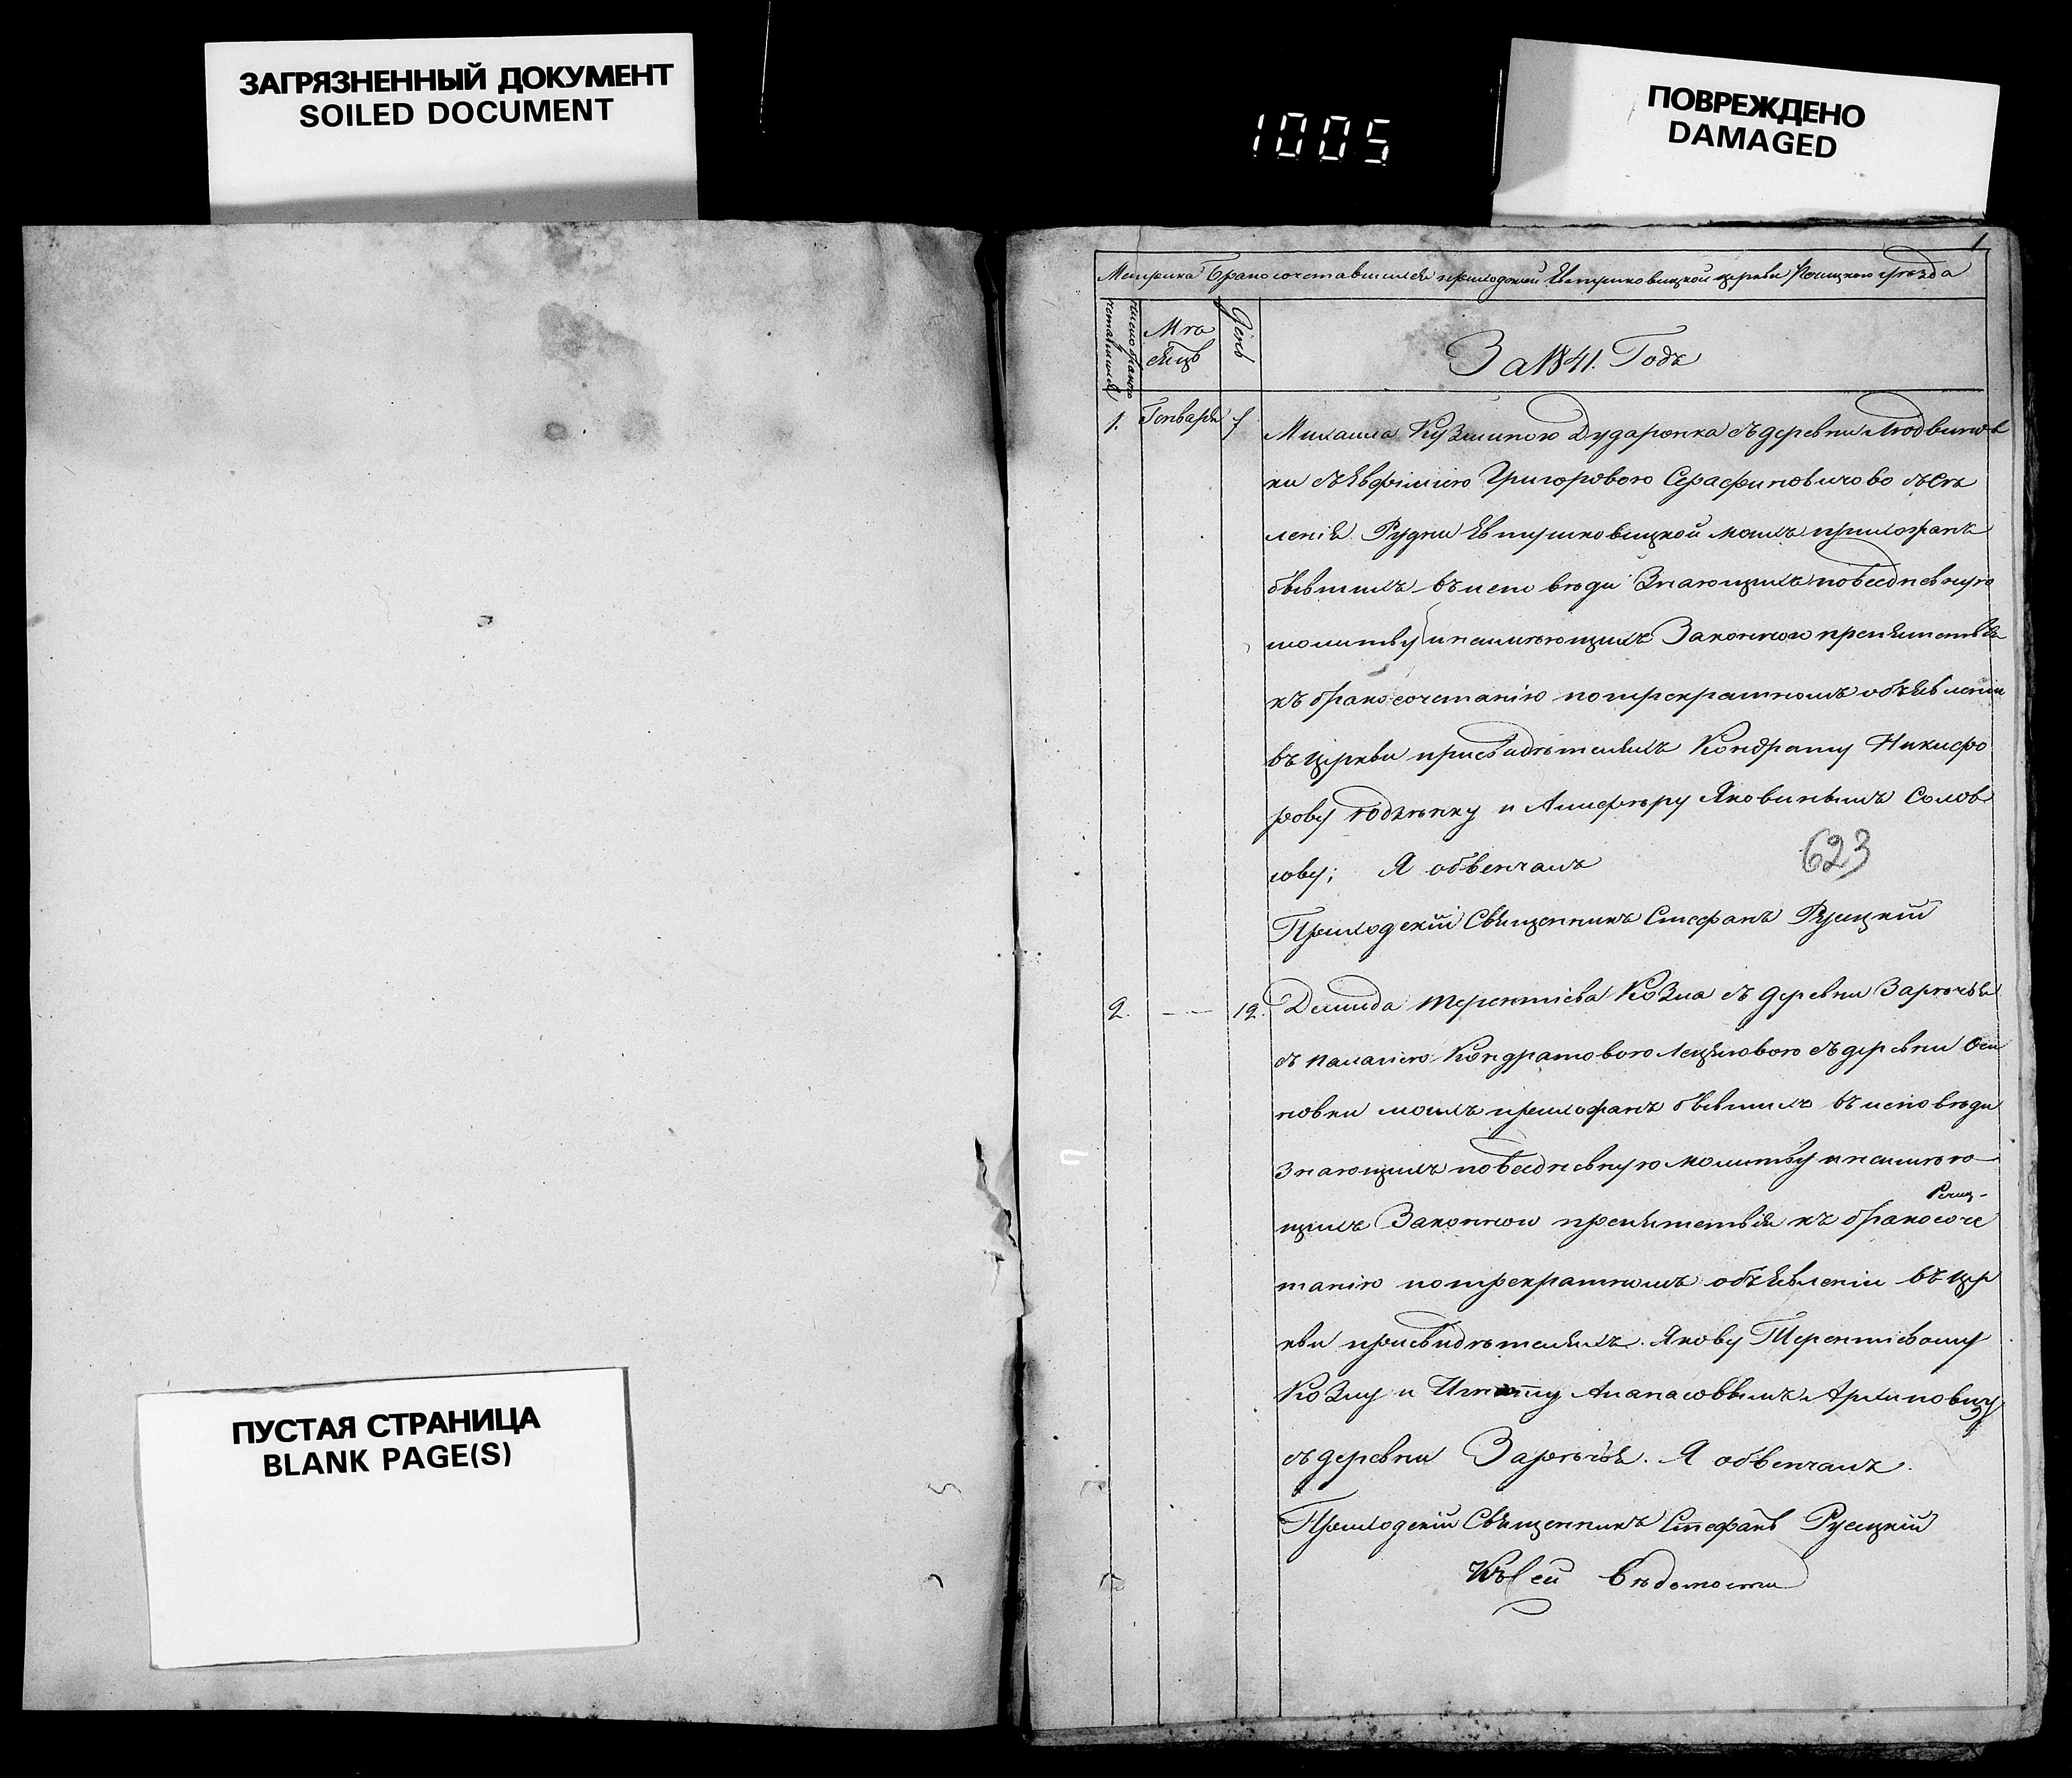 ЗАГРЯЗНЕННЫЙ ДОКУМЕНТ
SOILED DOCUMENT
1005
ПОВРЕЖДЕНО
DAMAGED
1
Метрика Бракосочетавшихся приходской церкви уѣзда
число бракосочетавшихся
Мѣсяцъ
День
За 1841. Годъ
1. Генваря 7
Михаила Кузмина Дударонка съ деревни Людвинов
ки съ Евфимiею Григоровою Серафиновичово съ се
ленiя Рудни Евтушковицкой моихъ прихожанъ
бывшихъ въ исповѣди Знающихъ повседневную
молитву и неимѣющихъ Законного препятствiя
къ бракосочетанiю по трекратномъ объявленiи
въ Церкви при свидѣтеляхъ Кондрату Никифо
рову и Яковинымъ Солов
Я обвенчалъ
623
Приходскiй Священникъ Стефанъ Русецкiй
2. 12.
Демида Терентiева Козла съ деревни Зарѣчья
съ Паланiею Кондратовою съ деревни Оси
новки моихъ прихожанъ бывшихъ въ исповѣди
Знающихъ повседневную молитву и неимѣю-
щихъ Законного препятствiя къ бракосоче
танiю по трекратномъ объявленiи въ Цер
кви при свидѣтеляхъ. Якову Терентiевому
Козлу и Игнату Апанасовымъ Архиповцу
съ деревни Зарѣчья. Я обвенчалъ.
Приходскiй Священникъ Стефанъ Русецкiй
Къ сей Вѣдомости
ПУСТАЯ СТРАНИЦА
BLANK PAGE(S)